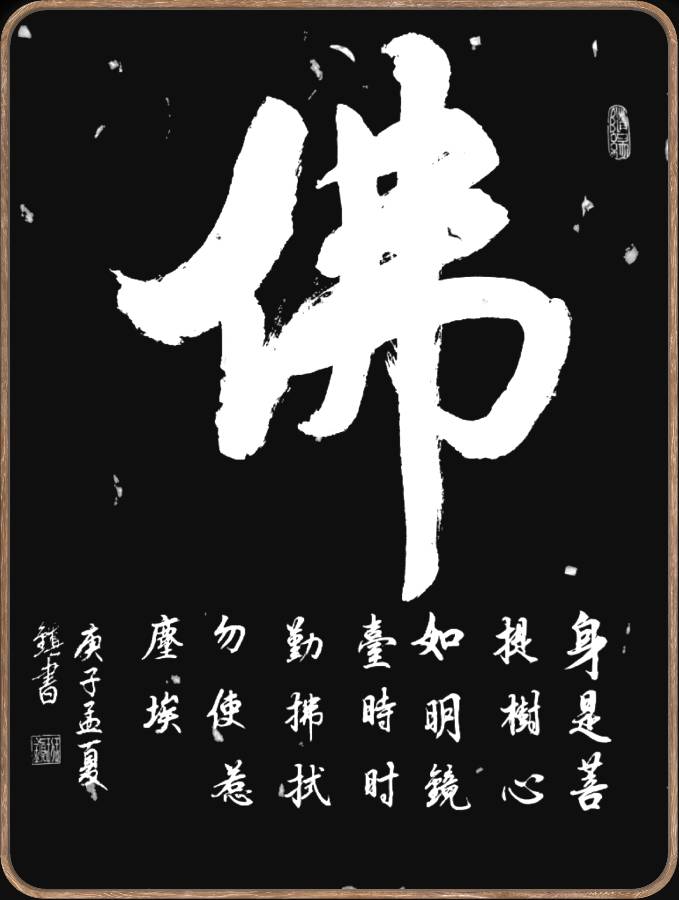 佛
身是菩
提樹心
如明鏡
臺時时
勤拂拭
勿使惹
塵埃
庚子孟夏
鎮書